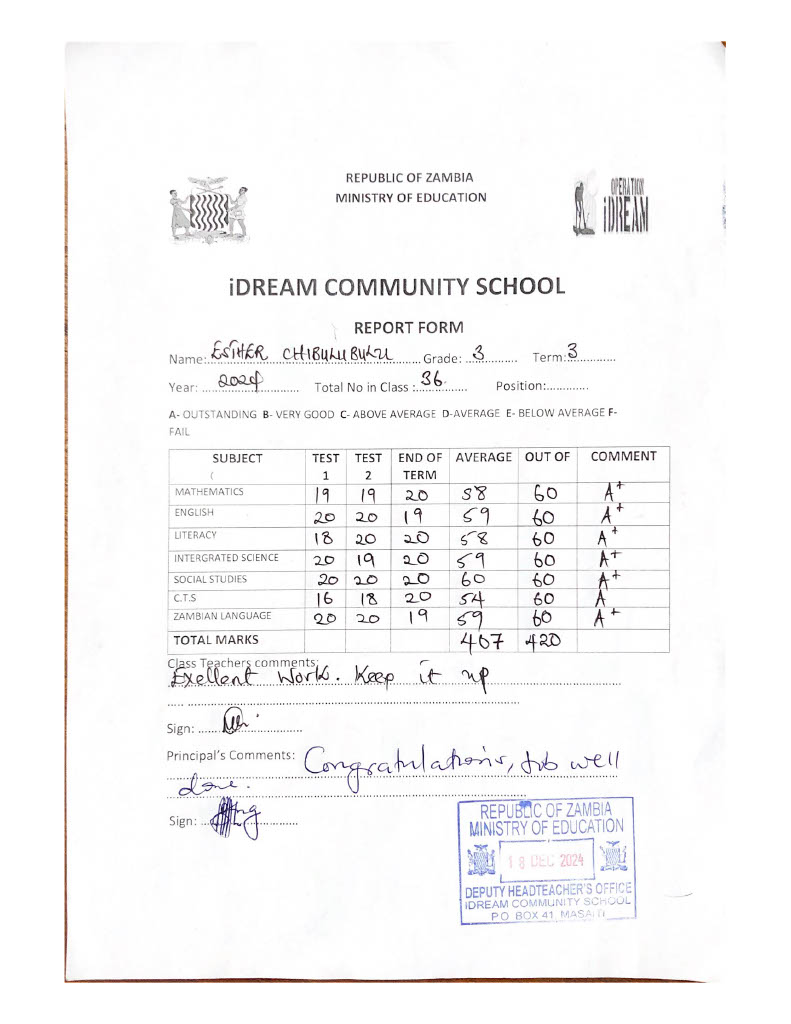 REPUBLIC OF ZAMBIA
MINISTRY OF EDUCATION
OPERATION
iDREAM
iDREAM COMMUNITY SCHOOL
REPORT FORM
Name: ESTHER CHIBULUBULU Grade: 3 Term: 3
Year: 2024 Total No in Class : 36 Position:
A- OUTSTANDING B- VERY GOOD C- ABOVE AVERAGE D-AVERAGE E- BELOW AVERAGE F-
FAIL
SUBJECT TEST 1 TEST 2 END OF TERM AVERAGE OUT OF COMMENT
MATHEMATICS 19 19 20 58 60 A+
ENGLISH 20 20 19 59 60 A+
LITERACY 18 20 20 58 60 A+
INTERGRATED SCIENCE 20 19 20 59 60 A+
SOCIAL STUDIES 20 20 20 60 60 A+
C.T.S 16 18 20 54 60 A
ZAMBIAN LANGUAGE 20 20 19 59 60 A+
TOTAL MARKS 407 420
Class Teachers comments:
Exellent Work. Keep it up
Sign:
Principal's Comments: Congratulations, Job well
done.
Sign:
REPUBLIC OF ZAMBIA
MINISTRY OF EDUCATION
18 DEC 2024
DEPUTY HEADTEACHER'S OFFICE
iDREAM COMMUNITY SCHOOL
P.O. BOX 41, MASAITI